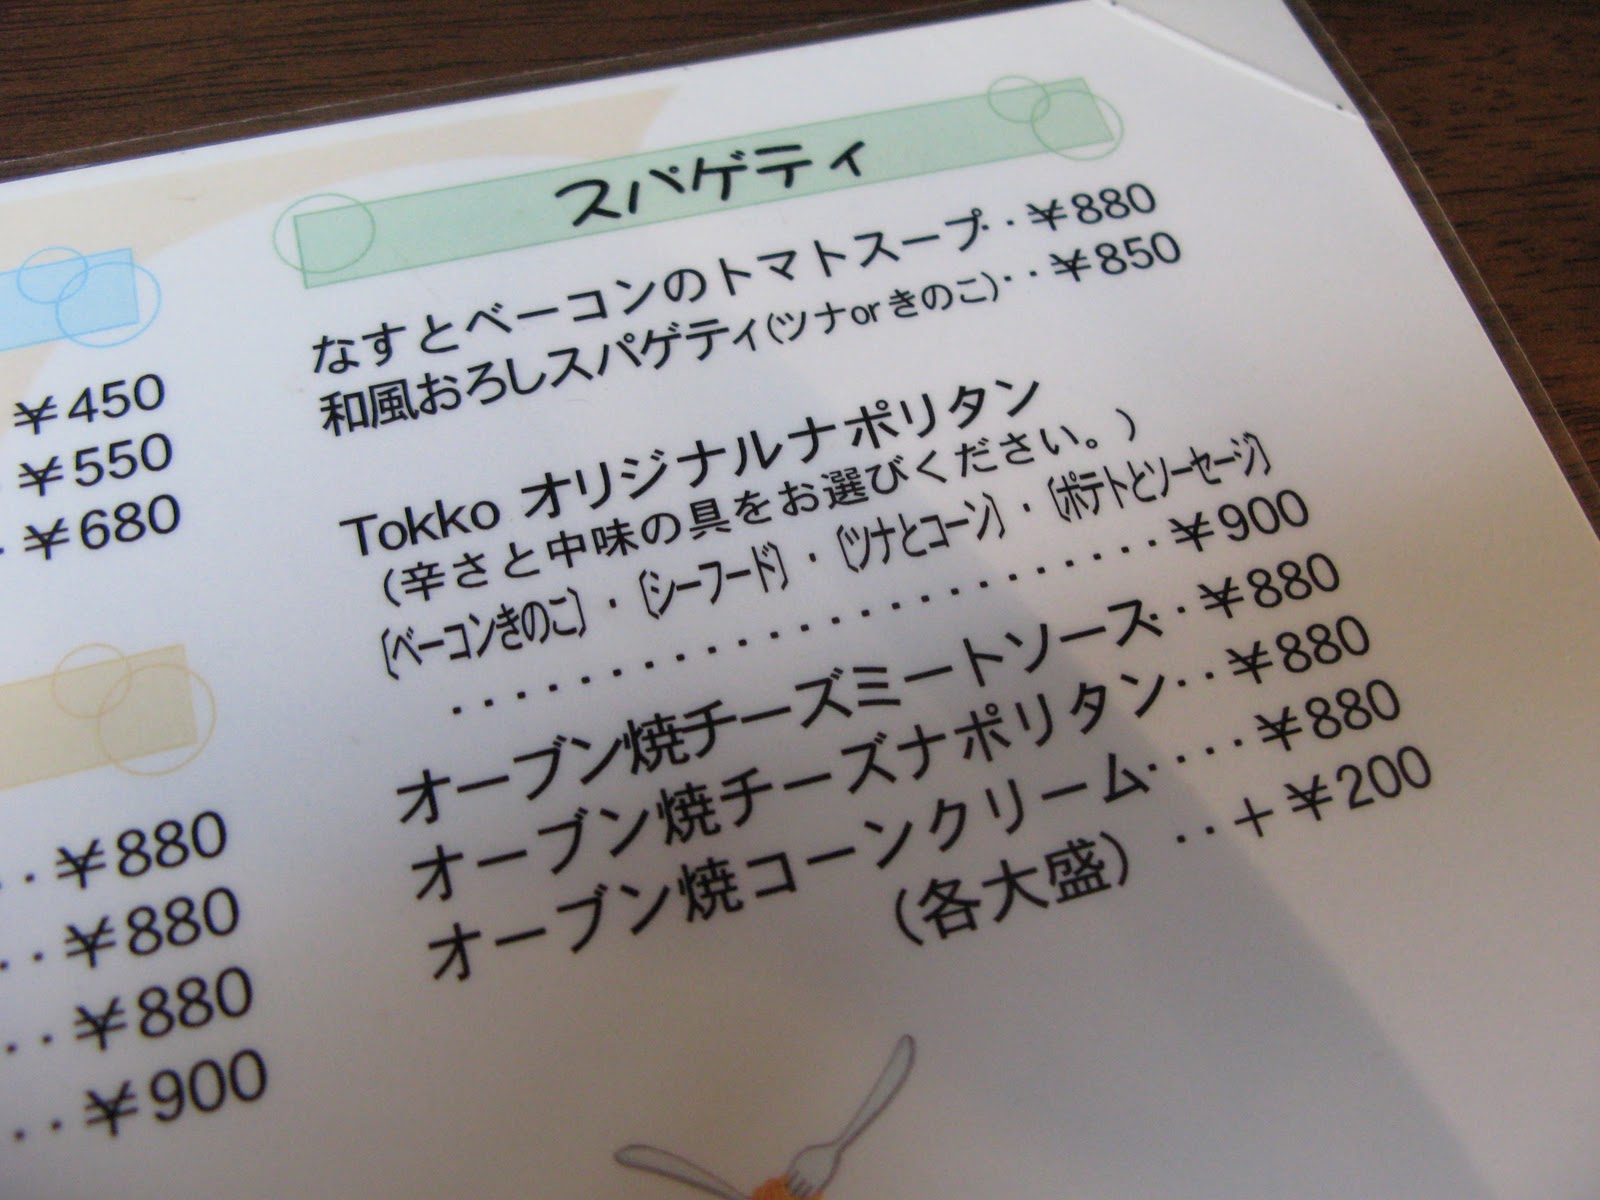 スパゲティ
なすとベーコンのトマトスープ‥¥880
和風おろしスパゲティ(ツナorきのこ)‥¥850
Tokko オリジナルナポリタン
(辛さと中味の具をお選びください。)
〔ベーコンきのこ〕・〔シーフード〕・〔ツナとコーン〕・〔ポテトとソーセージ〕
‥‥‥‥‥‥‥‥‥‥‥¥900
オーブン焼チーズミートソース‥¥880
オーブン焼チーズナポリタン‥¥880
オーブン焼コーンクリーム‥‥¥880
(各大盛)‥+¥200
¥450
¥550
¥680
‥¥880
‥¥880
‥¥880
‥¥900